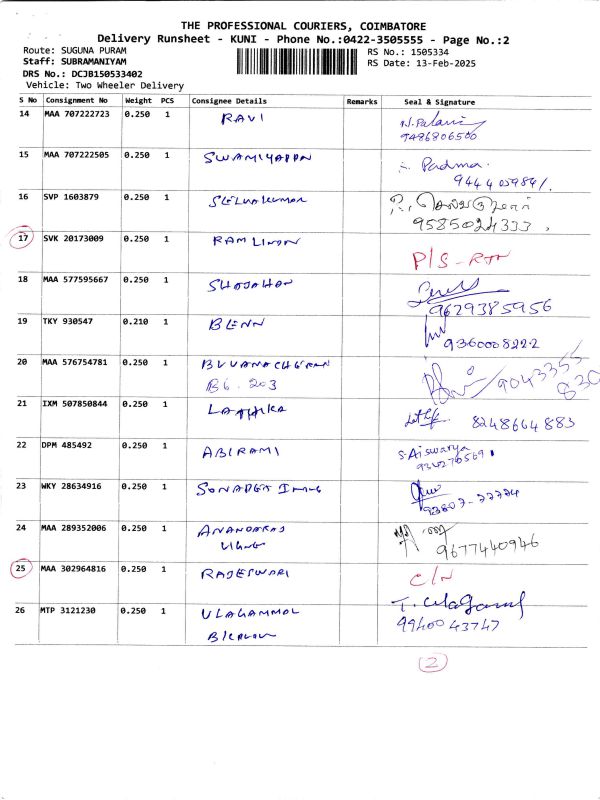 THE PROFESSIONAL COURIERS, COIMBATORE
Delivery Runsheet - KUNI - Phone No.:0422-3505555 - Page No.:2
Route: SUGUNA PURAM RS No.: 1505334
Staff: SUBRAMANIYAM RS Date: 13-Feb-2025
DRS No.: DCJB150533402
Vehicle: Two Wheeler Delivery
S No Consignment No Weight PCS Consignee Details Remarks Seal & Signature
14 MAA 707222723 0.250 1 RAVI N. Palani
9486806500
15 MAA 707222505 0.250 1 SWAMIYAPPAN Padma.
16 SVP 1603879 0.250 1 SELVAKUMAR
9585024333.
17 SVK 20173009 0.250 1 RAM P/S - RTN
18 MAA 577595667 0.250 1 SHAJAHAN
9629385956
19 TKY 930547 0.210 1 BLENN
9360008222
20 MAA 576754781 0.250 1
B6. 203 9043355
830
21 IXM 507850844 0.250 1 LATHIKA 8248664883
22 DPM 485492 0.250 1 ABIRAMI S. Aiswarya
23 WKY 28634916 0.250 1
24 MAA 289352006 0.250 1 ANANDARAJ
9677440946
25 MAA 302964816 0.250 1 RAJESWARI C/N
26 MTP 3121230 0.250 1 ULAGAMMAL T.
99400 43747
2